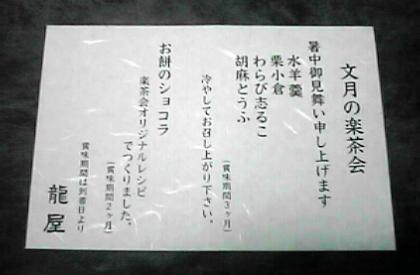 文月の楽茶会
暑中御見舞い申し上げます
水羊羹
栗小倉
わらび志るこ
胡麻とうふ
(賞味期間3ヶ月)
冷やしてお召し上がり下さい。
お餅のショコラ
楽茶会オリジナルレシピ
でつくりました。
(賞味期間2ヶ月)
賞味期間は到着日より
龍屋